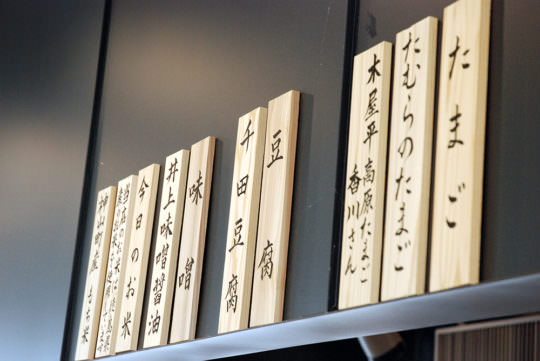 たまご
たむらのたまご
木屋平 高原たまご
香川さん
豆腐
千田豆腐
味噌
井上味噌醤油
今日のお米
神山町産 もち米